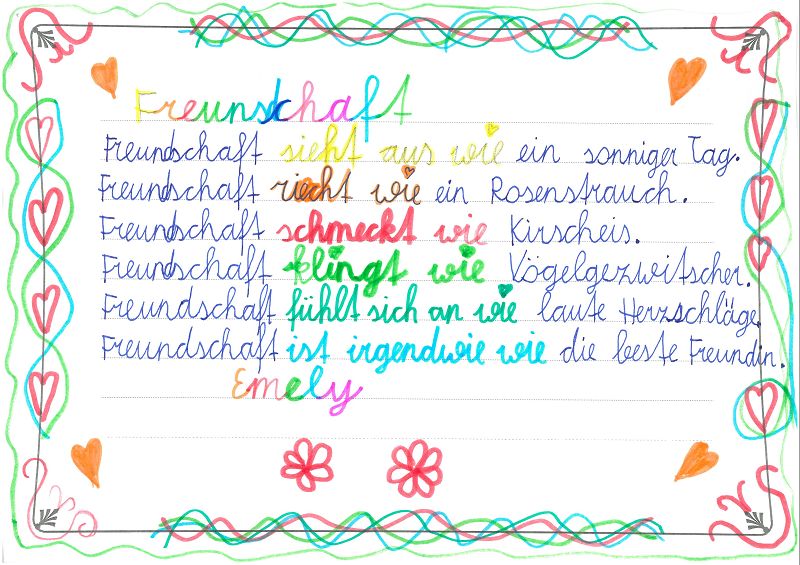 Freunschaft
Freundschaft sieht aus wie ein sonniger Tag.
Freundschaft riecht wie ein Rosenstrauch.
Freundschaft schmeckt wie Kirscheis.
Freundschaft klingt wie Vögelgezwitscher.
Freundschaft fühlt sich an wie laute Herzschläge
Freundschaft ist irgendwie wie die beste Freundin.
Emely